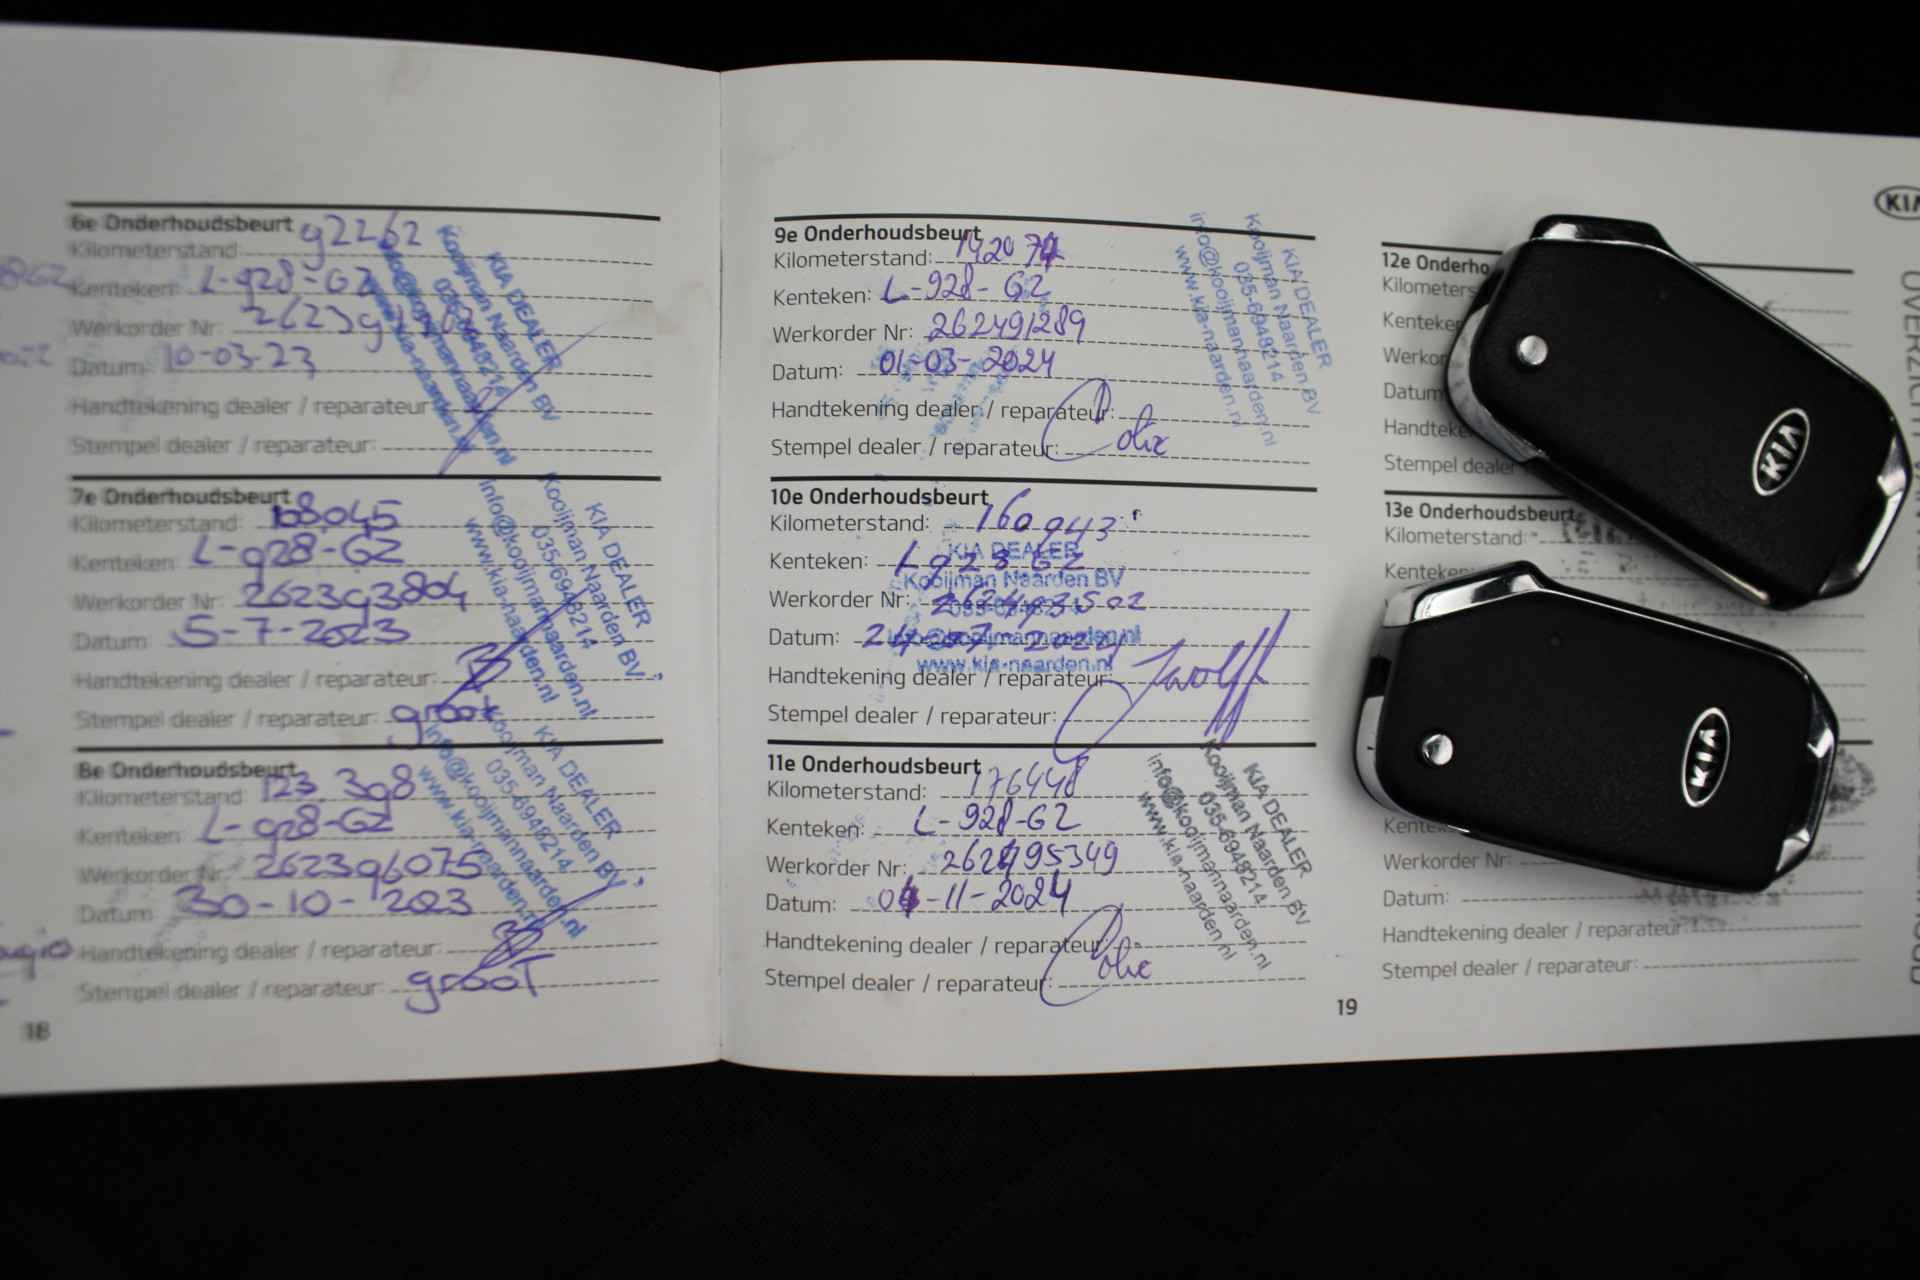 6e Onderhoudsbeurt
Kilometerstand: 92262
Kenteken: L-928-GZ
Werkorder Nr:
Datum: 10-03-23
Handtekening dealer / reparateur:
Stempel dealer / reparateur:
KIA DEALER
Kooijman Naarden BV
035-6948214
info@kooijmannaarden.nl
www.kia-naarden.nl
7e Onderhoudsbeurt
Kilometerstand: 108.045
Kenteken: L-928-GZ
Werkorder Nr: 262393804
Datum: 5-7-2023
Handtekening dealer / reparateur:
Stempel dealer / reparateur: groot
KIA DEALER
Kooijman Naarden BV
035-6948214
info@kooijmannaarden.nl
www.kia-naarden.nl
8e Onderhoudsbeurt
Kilometerstand 123.398
Kenteken: L-928-GZ
Werkorder Nr: 262396075
Datum: 30-10-2023
Handtekening dealer / reparateur:
Stempel dealer / reparateur: grooT
KIA DEALER
Kooijman Naarden BV
035-6948214
info@kooijmannaarden.nl
www.kia-naarden.nl
18
9e Onderhoudsbeurt
Kilometerstand:
Kenteken: L-928-GZ
Werkorder Nr: 262491289
Datum: 01-03-2024
Handtekening dealer / reparateur:
Stempel dealer / reparateur:
KIA DEALER
Kooijman Naarden BV
035-6948214
info@kooijmannaarden.nl
www.kia-naarden.nl
10e Onderhoudsbeurt
Kilometerstand: 160943
Kenteken: L 928 GZ
Werkorder Nr: 262493502
Datum:
Handtekening dealer / reparateur:
Stempel dealer / reparateur:
KIA DEALER
Kooijman Naarden BV
035-6948214
info@kooijmannaarden.nl
www.kia-naarden.nl
11e Onderhoudsbeurt
Kilometerstand: 176448
Kenteken: L-928-GZ
Werkorder Nr: 262495349
Datum: 04-11-2024
Handtekening dealer / reparateur:
Stempel dealer / reparateur:
KIA DEALER
Kooijman Naarden BV
035-6948214
info@kooijmannaarden.nl
www.kia-naarden.nl
19
12e Onderho
Kilometers
Kenteken
Werkor
Datum
Handteke
Stempel dealer
13e Onderhoudsbeurt
Kilometerstand:
Kenteken:
Kente
Werkorder Nr:
Datum:
Handtekening dealer / reparateur:
Stempel dealer / reparateur:
KIA
KIA
KIA